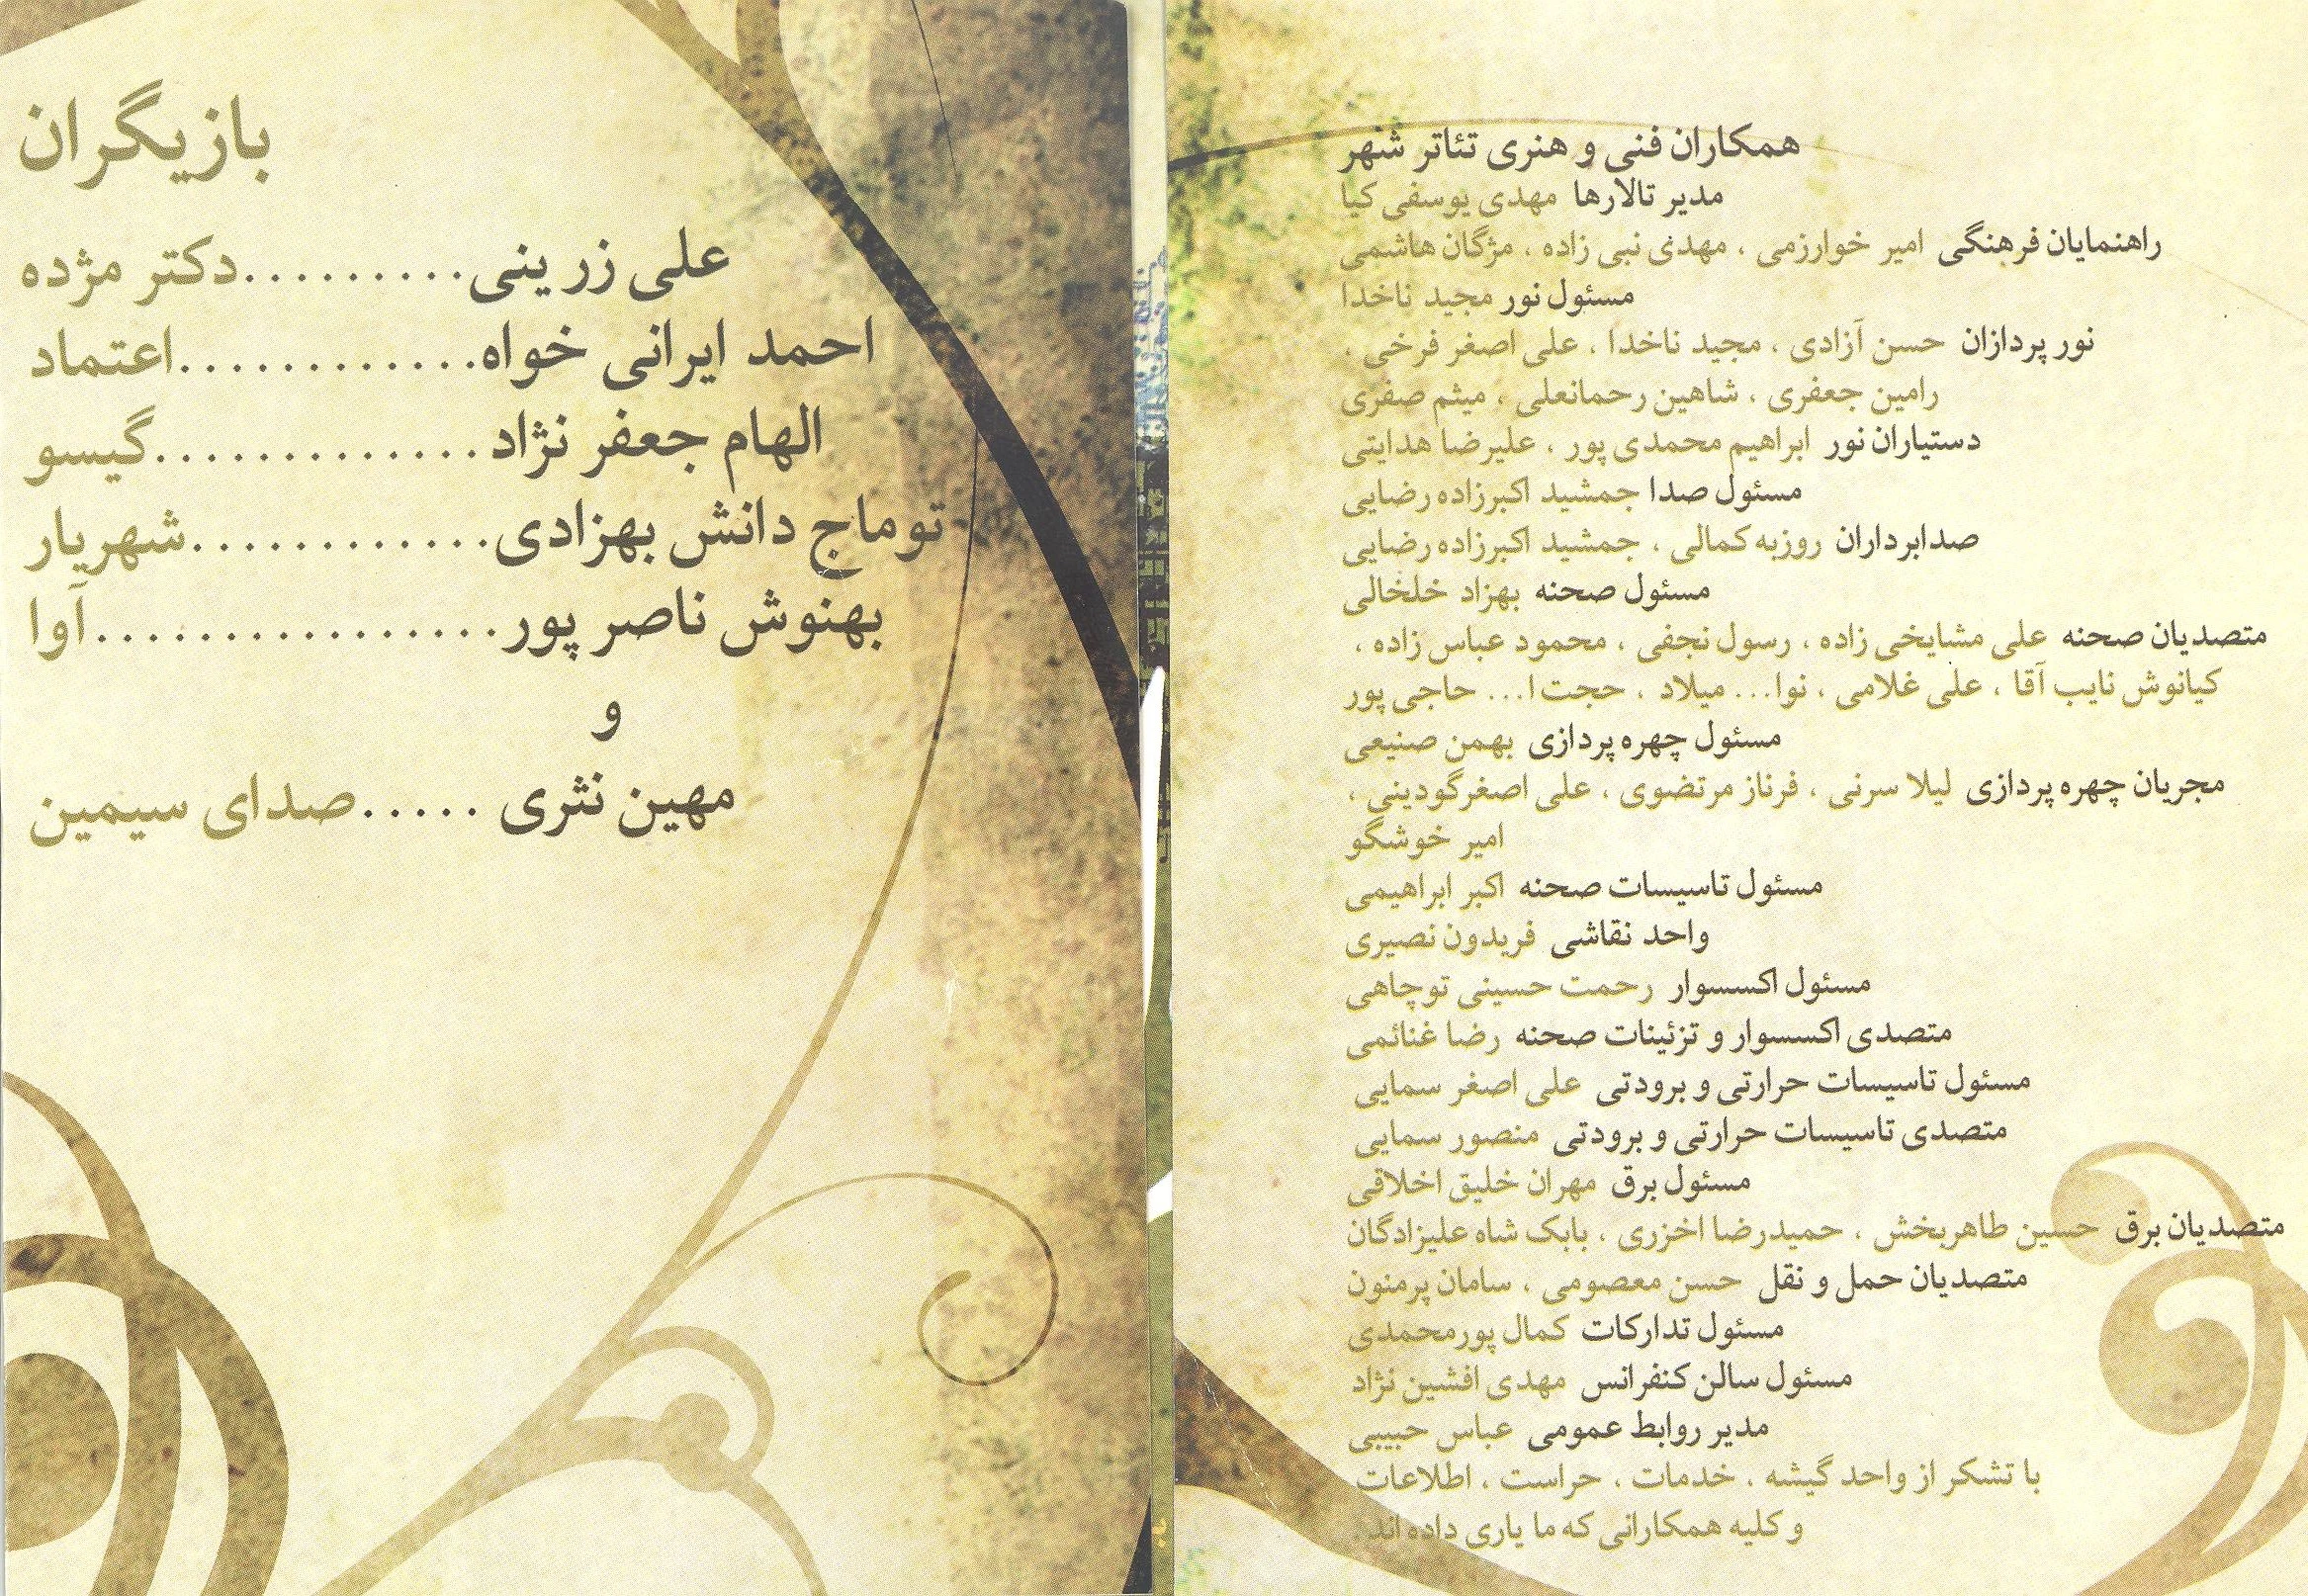 همکاران فنی و هنری تئاتر شهر
مدیر تالارها مهدی یوسفی کیا
راهنمایان فرهنگی امیر خوارزمی ، مهدی نبی زاده ، مژگان هاشمی
مسئول نور مجید ناخدا
نور پردازان حسن آزادی ، مجید ناخدا ، علی اصغر فرخی ،
رامین جعفری ، شاهین رحمانعلی ، میثم صفری
دستیاران نور ابراهیم محمدی پور ، علیرضا هدایتی
مسئول صدا جمشید اکبرزاده رضایی
صدابرداران روزبه کمالی ، جمشید اکبرزاده رضایی
مسئول صحنه بهزاد خلخالی
متصدیان صحنه علی مشایخی زاده ، رسول نجفی ، محمود عباس زاده ،
کیانوش نایب آقا ، علی غلامی ، نوا... میلاد ، حجت ا... حاجی پور
مسئول چهره پردازی بهمن صنیعی
مجریان چهره پردازی لیلا سرنی ، فرناز مرتضوی ، علی اصغر گودینی ،
امیر خوشگو
مسئول تاسیسات صحنه اکبر ابراهیمی
واحد نقاشی فریدون نصیری
مسئول اکسسوار رحمت حسینی توچاهی
متصدی اکسسوار و تزئینات صحنه رضا غنائمی
مسئول تاسیسات حرارتی و برودتی علی اصغر سمایی
متصدی تاسیسات حرارتی و برودتی منصور سمایی
مسئول برق مهران خلیق اخلاقی
متصدیان برق حسین طاهربخش ، حمیدرضا اخزری ، بابک شاه علیزادگان
متصدیان حمل و نقل حسن معصومی ، سامان پرمنون
مسئول تدارکات کمال پورمحمدی
مسئول سالن کنفرانس مهدی افشین نژاد
مدیر روابط عمومی عباس حبیبی
با تشکر از واحد گیشه ، خدمات ، حراست ، اطلاعات
و کلیه همکارانی که ما یاری داده اند .
بازیگران
علی زرینی.........دکتر مژده
احمد ایرانی خواه............اعتماد
الهام جعفر نژاد.............گیسو
توماج دانش بهزادی............شهریار
بهنوش ناصر پور................آوا
و
مهین نثری .....صدای سیمین